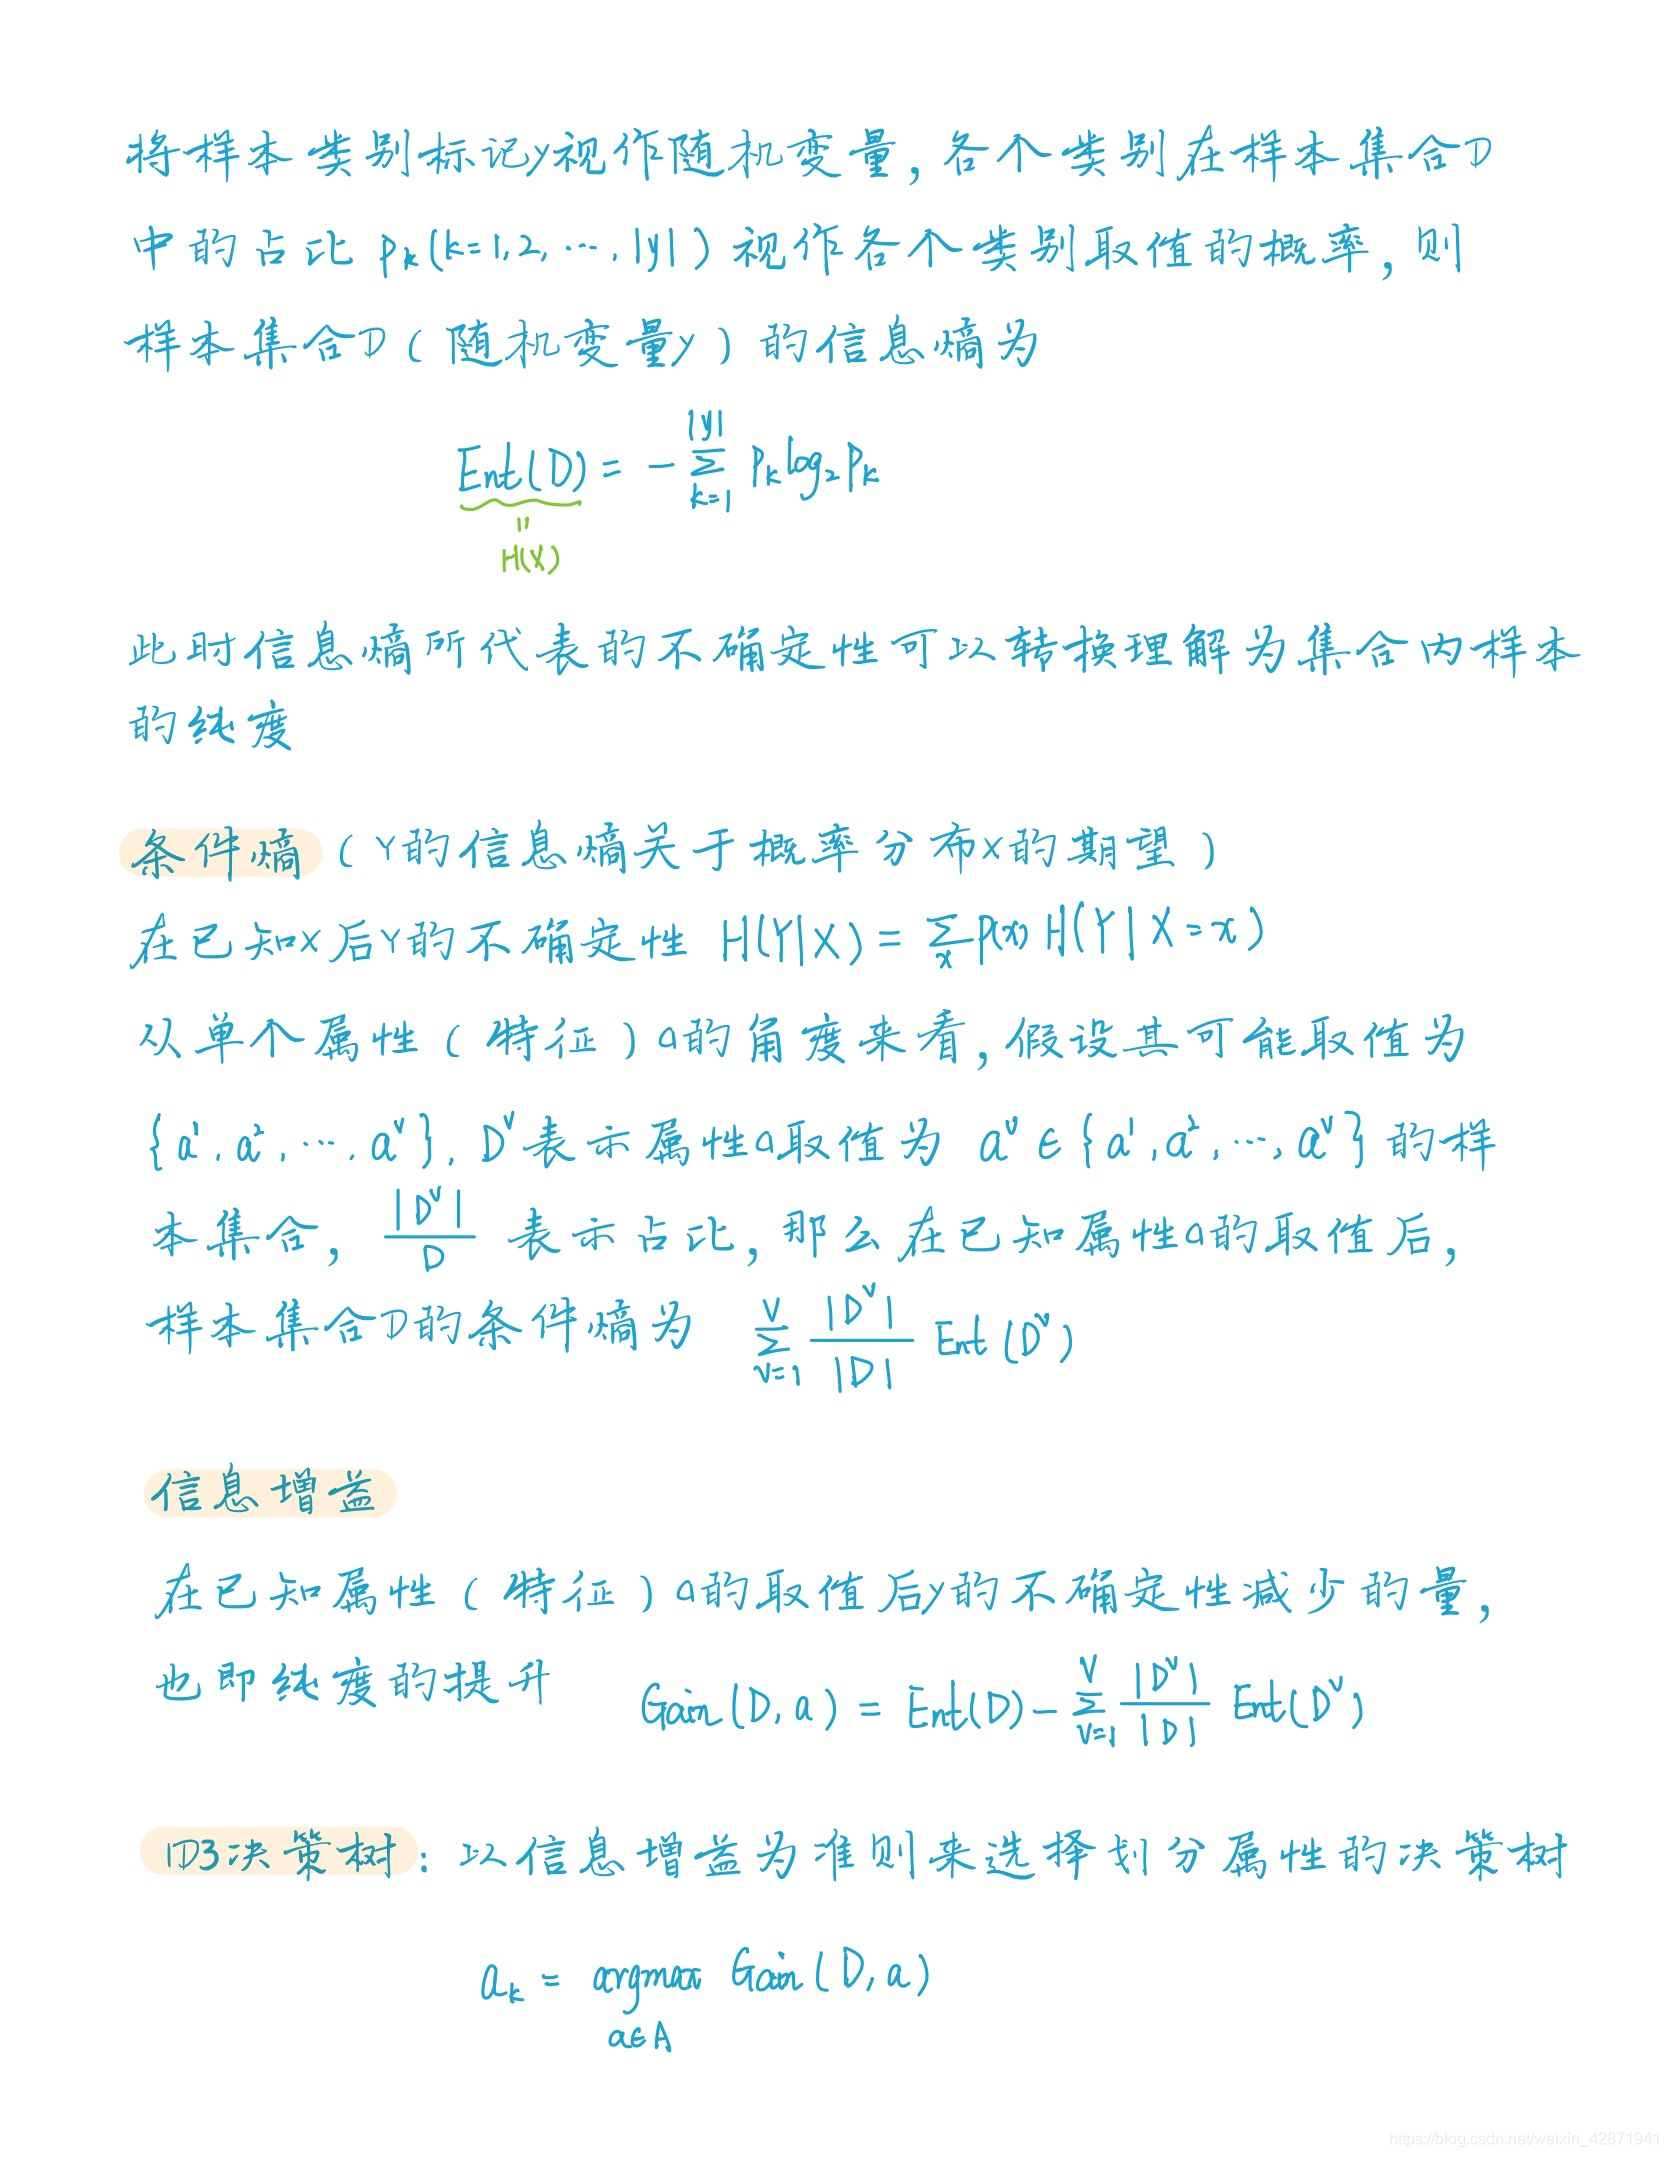 将样本类别标记y视作随机变量,各个类别在样本集合D
中的占比 pk(k=1,2,…,|y|)视作各个类别取值的概率,则
样本集合D(随机变量y)的信息熵为
Ent(D) = - ∑_{k=1}^{|y|} pk log₂ pk
"
H(X)
此时信息熵所代表的不确定性可以转换理解为集合内样本
的纯度
条件熵(Y的信息熵关于概率分布X的期望)
在已知X后Y的不确定性 H(Y|X) = ∑_x P(x) H(Y|X=x)
从单个属性(特征)a的角度来看,假设其可能取值为
{a¹,a²,…,aᵛ},Dᵛ表示属性a取值为 aᵛ∈{a¹,a²,…,aᵛ}的样
本集合,|Dᵛ|/D 表示占比,那么在已知属性a的取值后,
样本集合D的条件熵为 ∑_{v=1}^{V} |Dᵛ|/|D| Ent(Dᵛ)
信息增益
在已知属性(特征)a的取值后y的不确定性减少的量,
也即纯度的提升 Gain(D,a) = Ent(D) - ∑_{v=1}^{V} |Dᵛ|/|D| Ent(Dᵛ)
ID3决策树:以信息增益为准则来选择划分属性的决策树
ak = argmax Gain(D,a)
a∈A
https://blog.csdn.net/weixin_42871941